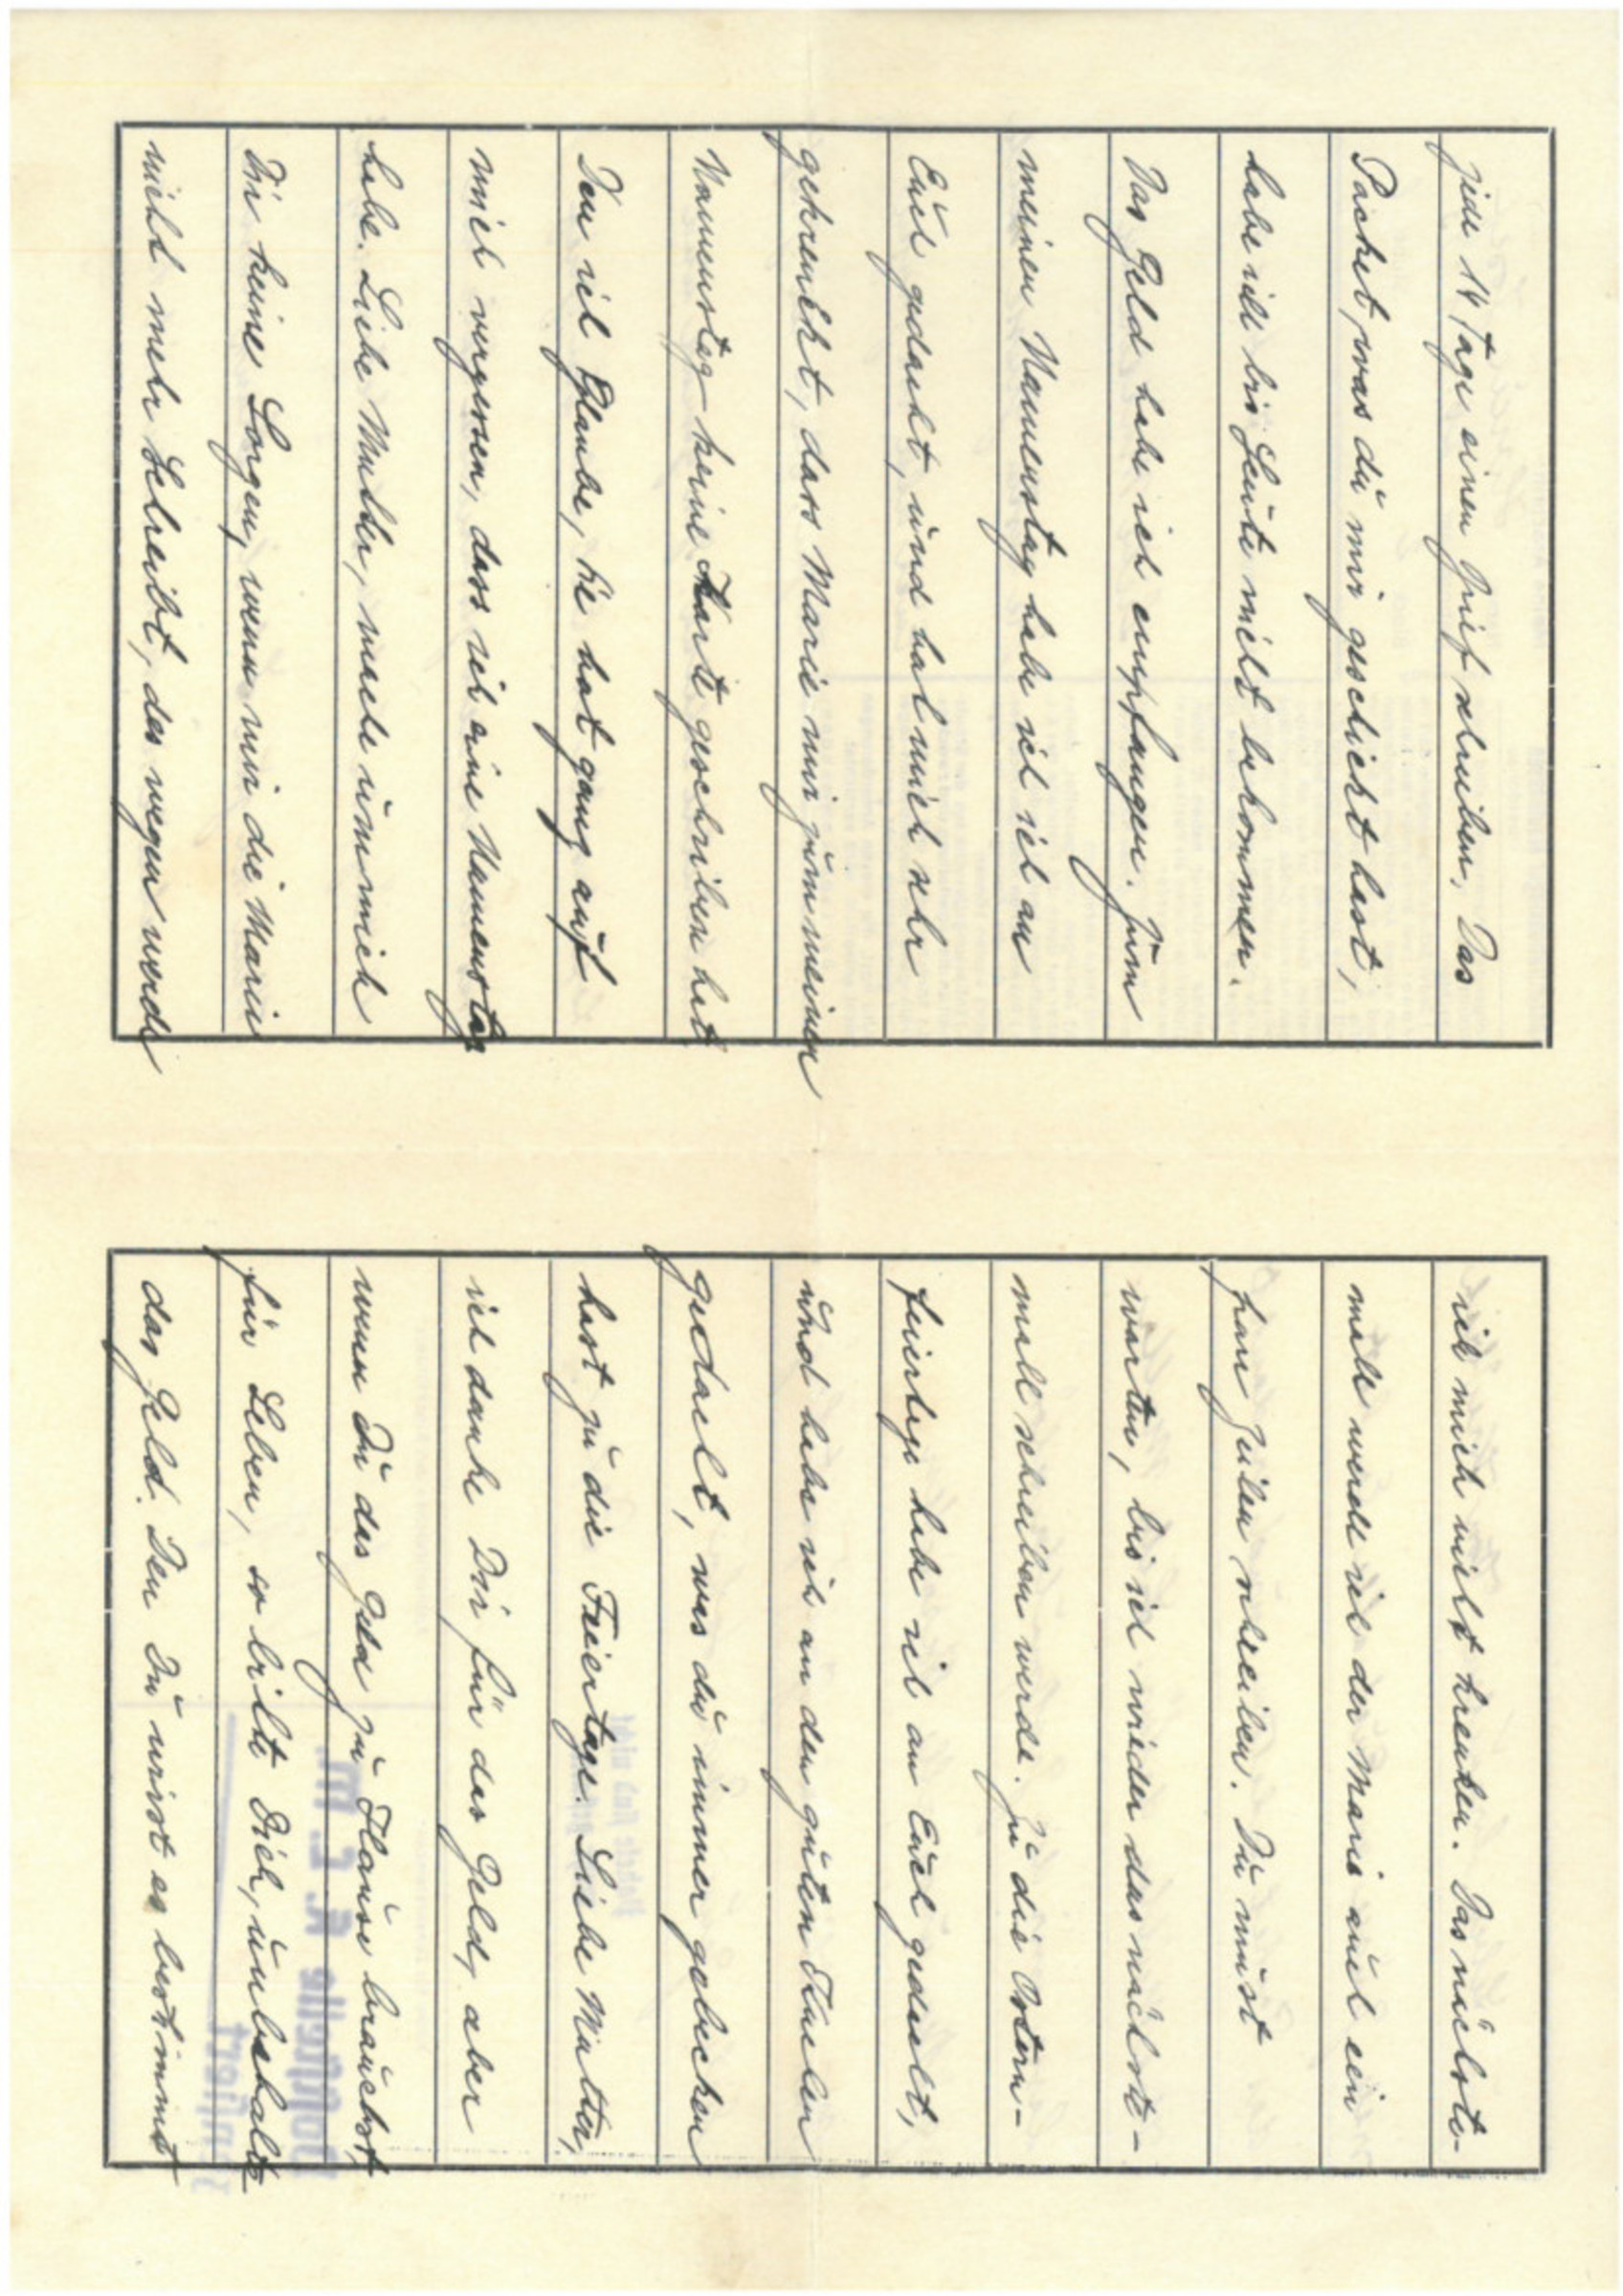 jede 14 Tage einen Brief schreiben. Das
Packet, was dü mir geschickt hast,
habe ich bis heüte nicht bekommen.
Das Geld habe ich empfangen. Züm
meinen Namenstag habe ich ich an
Eüch gedacht, ünd hat mich sehr
gekrenkt, dass Marie mir züm meinen
Namenstag keine Karte geschriben hat
Den ich Glaube, sie hat ganz aüf
mich vergessen, dass ich eine Namenstag
habe. Liebe Mutter, mache üm mich
Dir keine Sorgen, wenn mir die Marie
nicht mehr Schreibt, das wegen werde
ich mich nicht krenken. Das nächste-
malt werde ich der Marie aüch ein
paar Zeilen schreiben. Dü müst
warten, bis ich wieder das nächste-
mall schreiben werde. Zü die Ostern-
feiertage habe ich an Eüch gedacht,
ünd habe ich an den güten Küchen
gedacht, was dü immer gebecken
hast zü die Feiertage. Liebe Mütter,
ich danke Dir für das Geld, aber
wenn Dü das Geld zü Haüse braüchst,
für Leben, so bitte Dich, ünd behalte
das Geld. Den Dü wirst es bestimmt